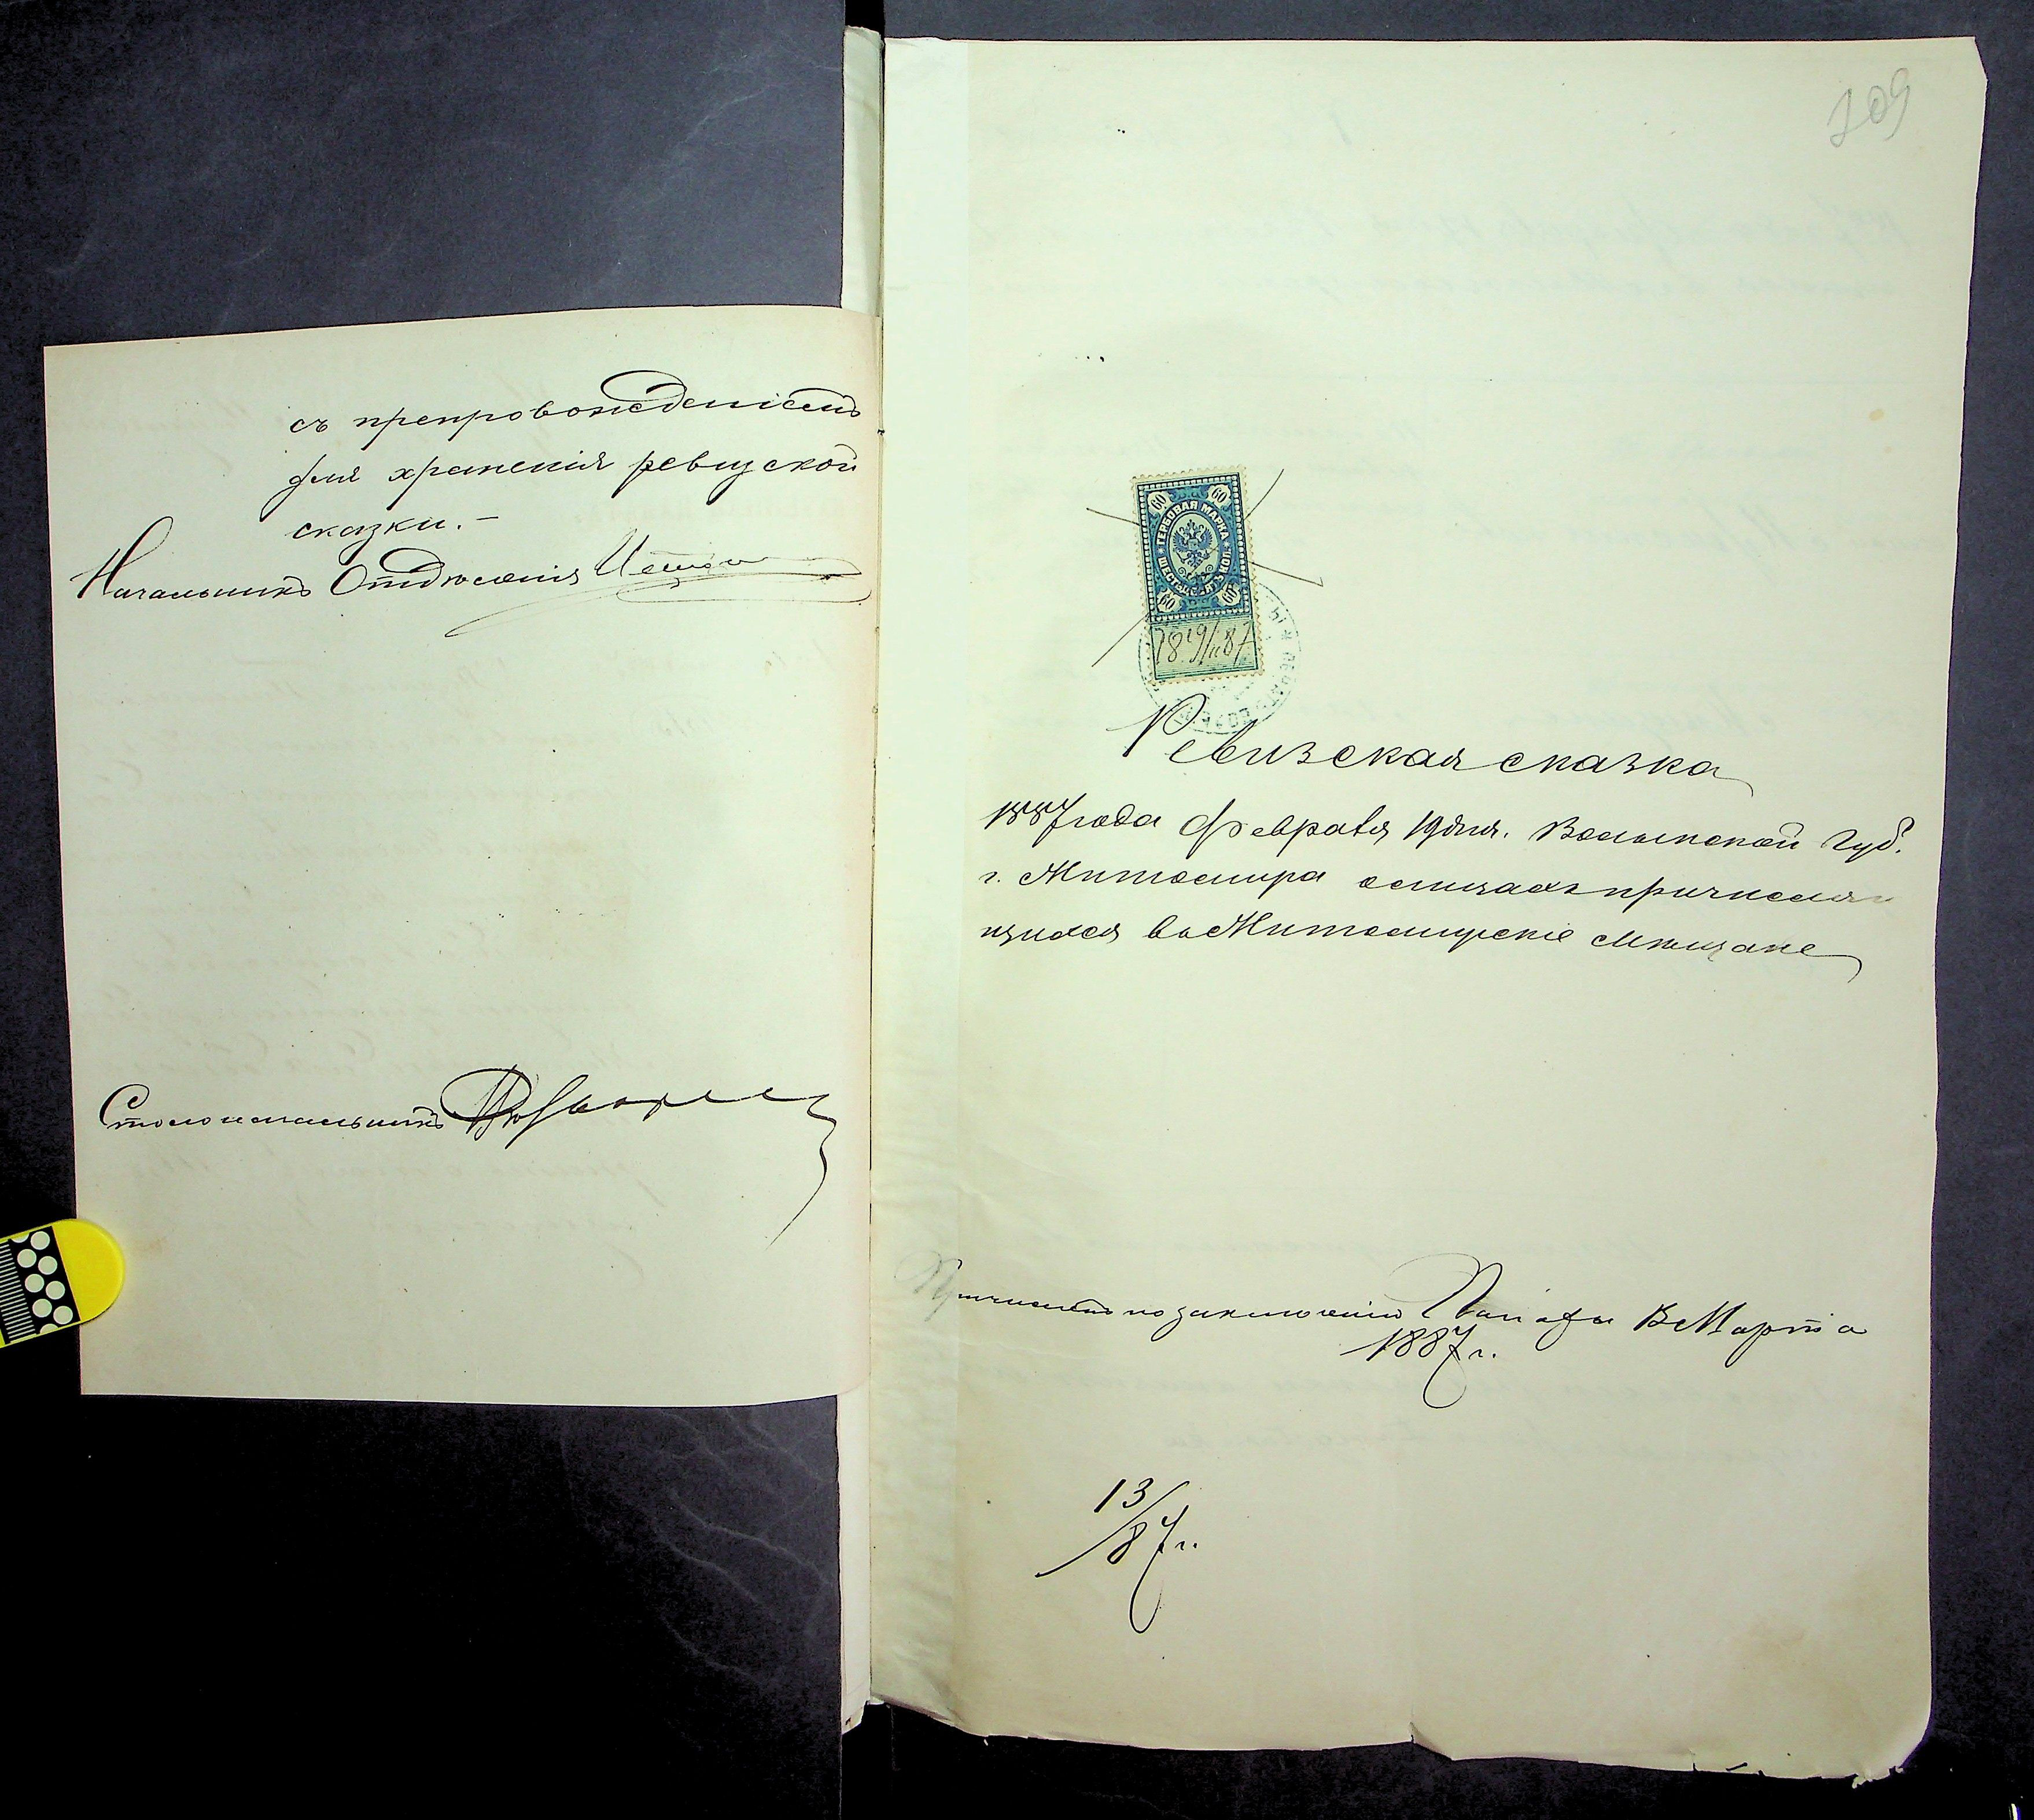 съ препровожденіемъ
для храненія ревизской
сказки.-
Начальникъ Отдѣленія
Столоначальникъ
209
60 60
ГЕРБОВАЯ МАРКА
ШЕСТЬДЕСЯТЪ КОП.
60 60
18 19/II 87
Ревизская сказка
1887 года Февраля 19 дня. Волынской Губ.
г. Житомира о лицахъ причисляю
щихся въ Житомирскіе мѣщане
Причисленъ по заключенію Палаты В Марта
1887 г.
13/87 г.